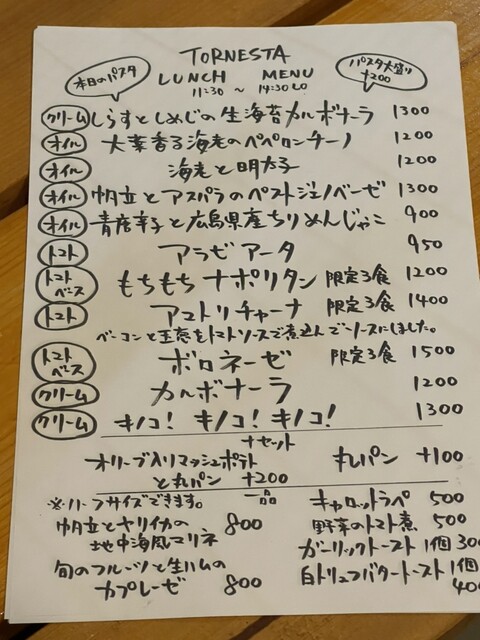 TORNESTA
LUNCH MENU
11:30 ～ 14:30 LO
本日のパスタ
パスタ大盛り
+200
クリーム しらすとしめじの生海苔カルボナーラ 1300
オイル 大葉香る海老のペペロンチーノ 1200
オイル 海老と明太子 1200
オイル 帆立とアスパラのペストジェノベーゼ 1300
オイル 青唐辛子と広島県産ちりめんじゃこ 900
トマト アラビアータ 950
トマトベース もちもちナポリタン 限定3食 1200
トマト アマトリチャーナ 限定3食 1400
ベーコンと玉葱をトマトソースで煮込んでソースにしました。
トマトベース ボロネーゼ 限定3食 1500
クリーム カルボナーラ 1200
クリーム キノコ! キノコ! キノコ! 1300
+セット
オリーブ入りマッシュポテト
と丸パン +200
丸パン +100
※ハーフサイズできます。
一品
帆立とヤリイカの
地中海風マリネ 800
旬のフルーツと生ハムの
カプレーゼ 800
キャロットラペ 500
野菜のトマト煮 500
ガーリックトースト 1個 300
白トリュフバタートースト 1個
400